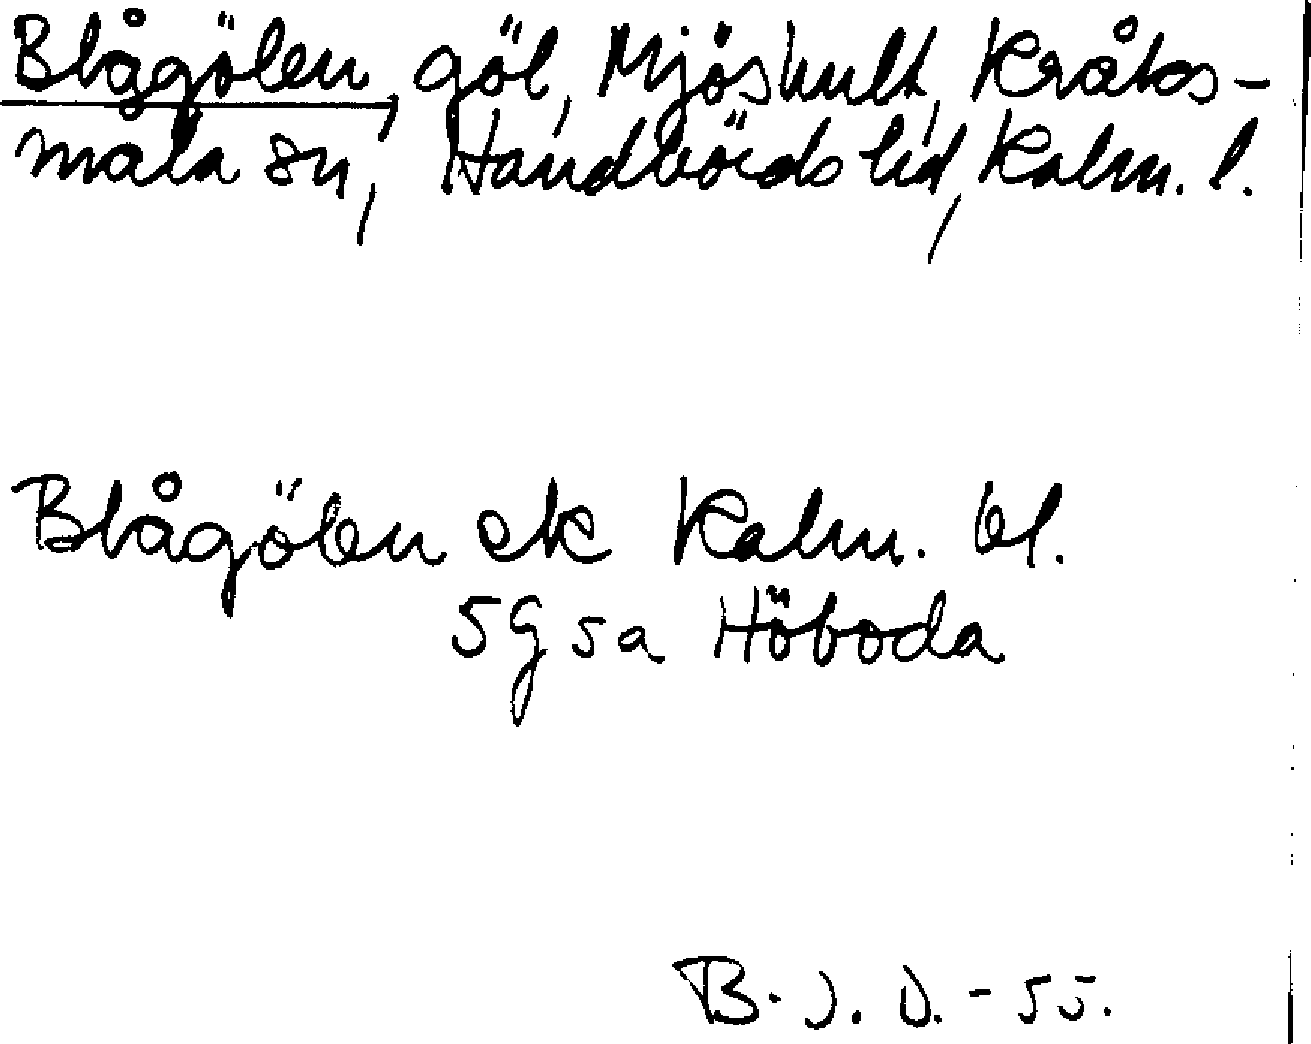 Blågölen, göl, Mjöshult, Kråks-
måla sn, Handbörds hd, Kalm. l.
Blågölen ek Kalm. bl.
5G 5a Höboda
B. J. D. -55.